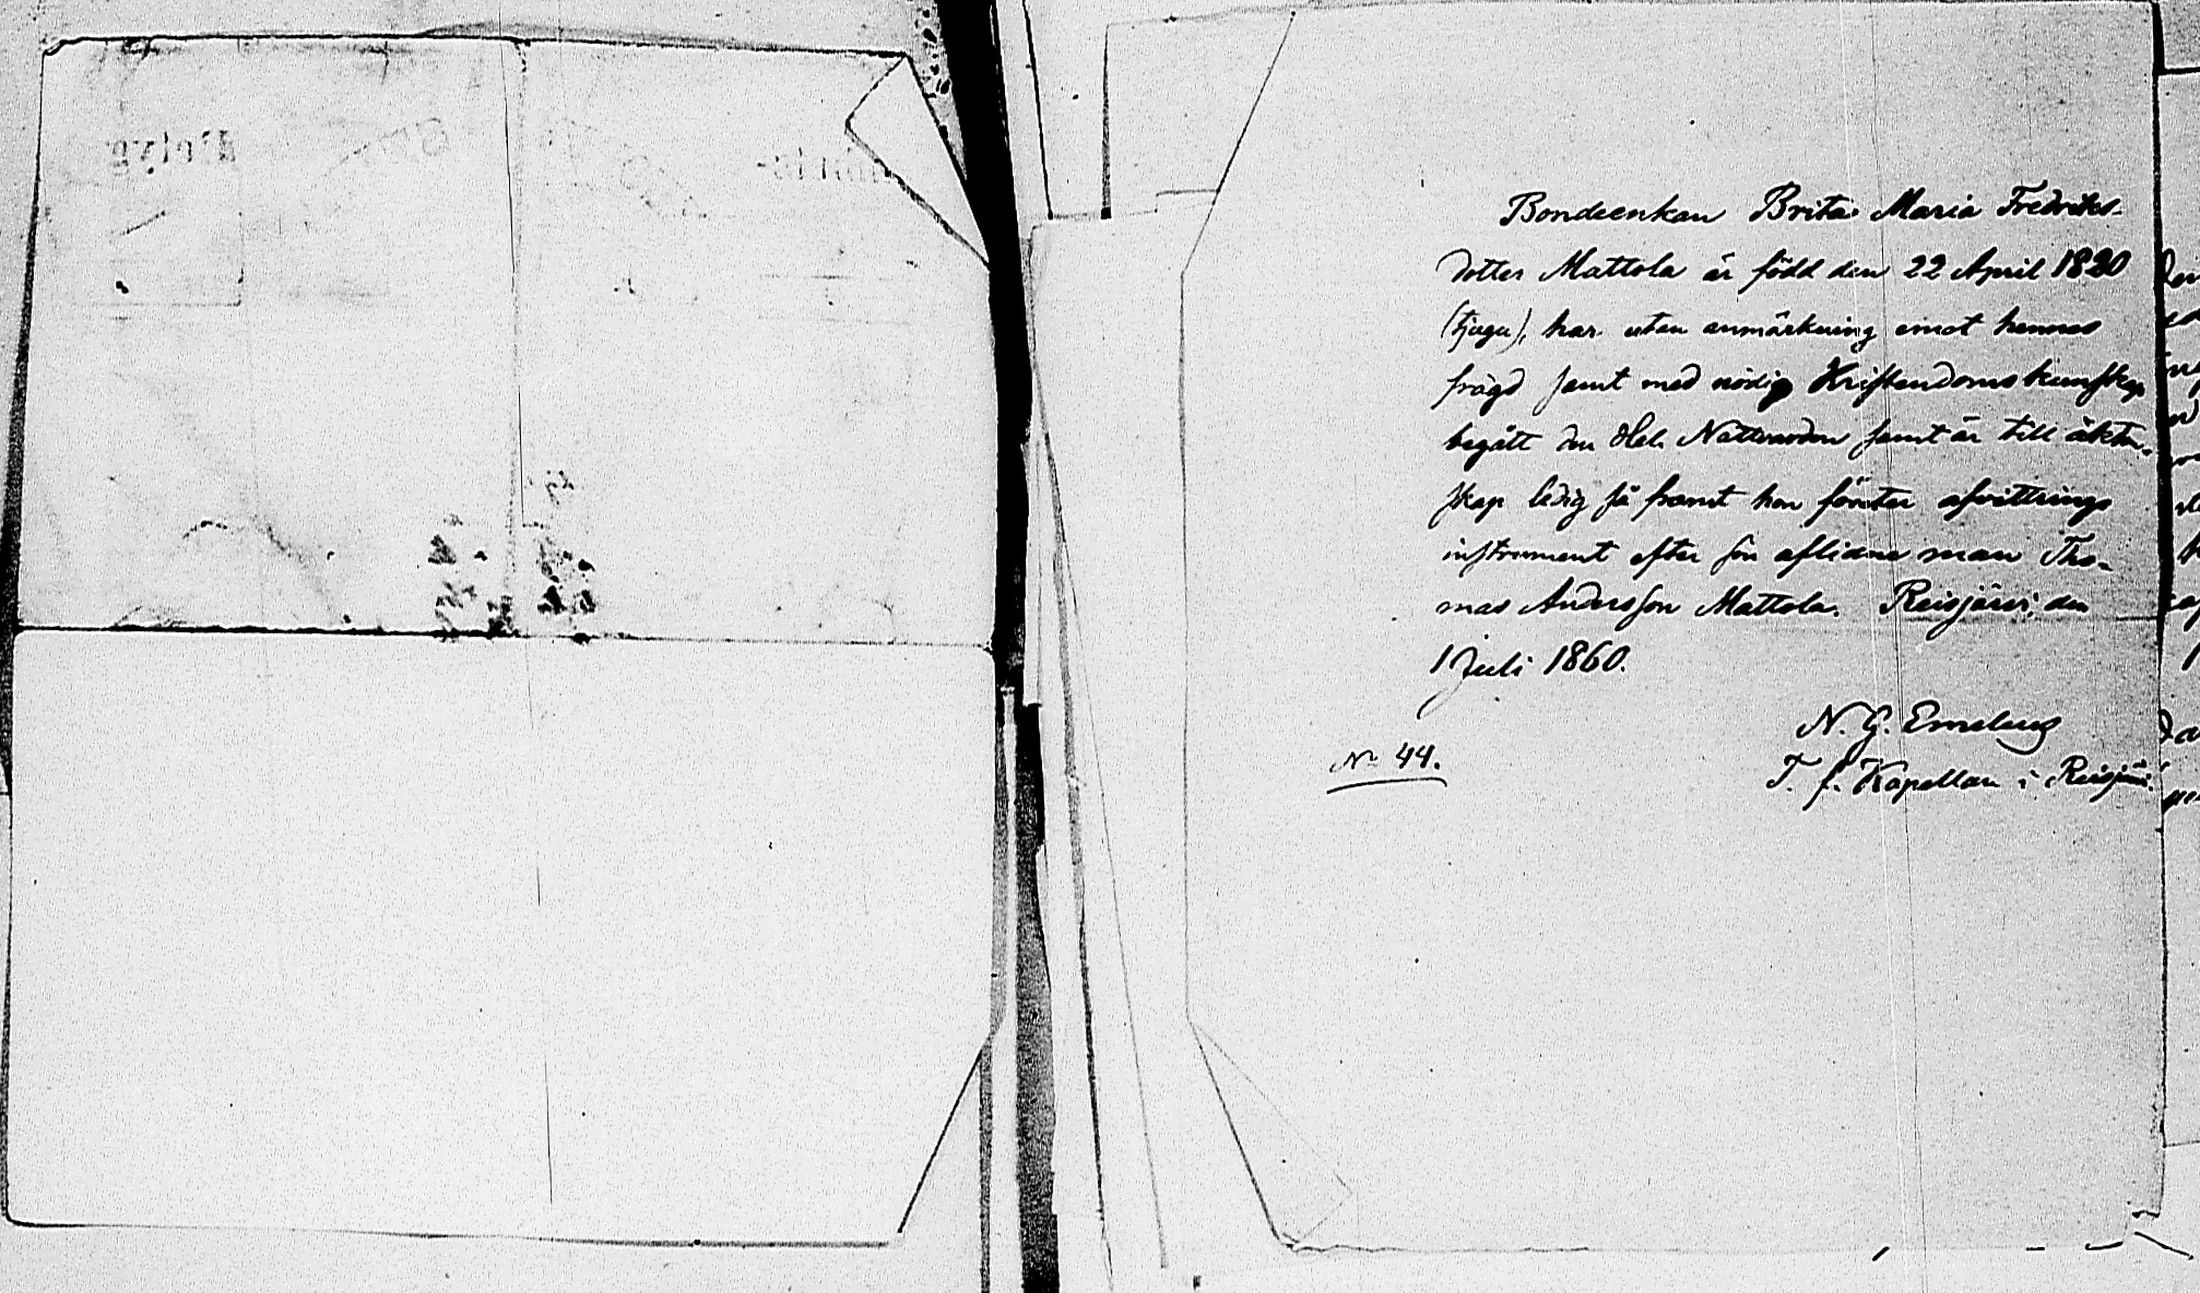 Bondeenkan Brita Maria Fredriks-
dotter Mattola är född den 22 April 1820
(tjugu), har utan anmärkning emot hennes
frägd samt med nödig Kristendomskunskap
begått den Hel. Nattvarden samt är till äkten-
skap ledig så framt hon företer afvittrings
instrument efter sin aflidne man Tho-
mas Andersson Mattola. Reisjärvi den
1 Juli 1860.
N. G. Emeleus
T. f. Kapellan i Reisjärvi.
No 44.